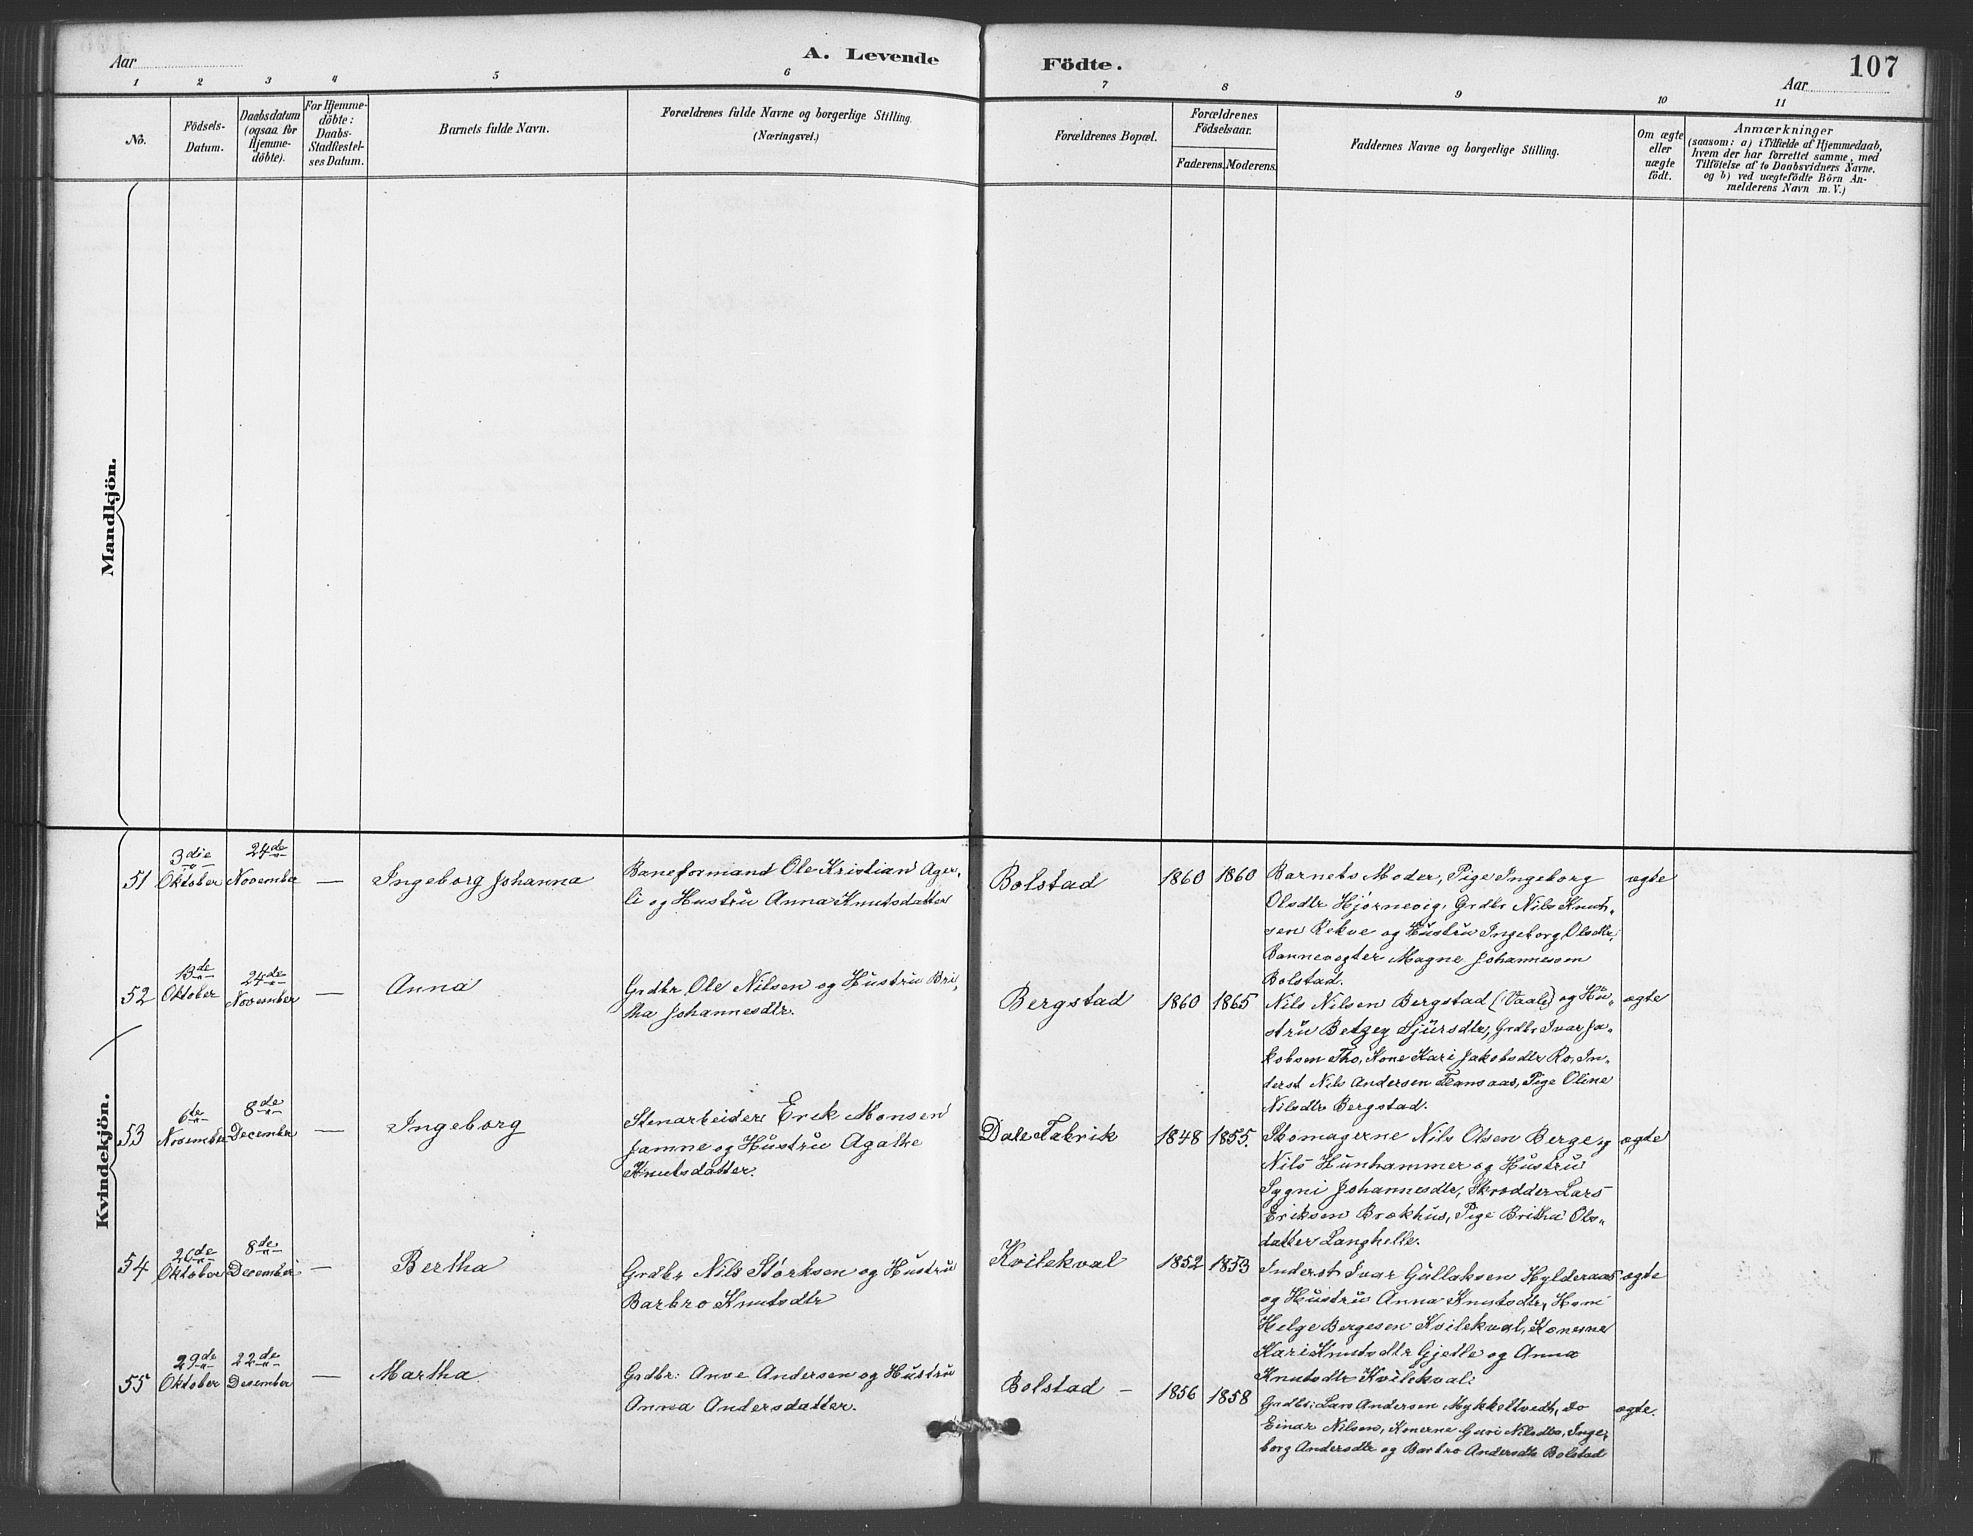 A. Levende Födte.
107
Aar
Aar
1 2 3 4 5 6 7 8 9 10 11
No.
Födsels-
Datum.
Daabsdatum
(ogsaa for
Hjemme-
döbte).
For Hjemme-
döbte:
Daabs-
Stadfæstel-
ses Datum.
Barnets fulde Navn.
Forældrenes fulde Navne og borgerlige Stilling.
(Næringsvei.)
Forældrenes Bopæl.
Forældrenes
Födselsaar.
Faderens. Moderens.
Faddernes Navne og borgerlige Stilling.
Om ægte
eller
uægte
födt.
Anmærkninger
(saasom: a) i Tilfælde af Hjemmedaab,
hvem der har forrettet samme, med
Tilföielse af to Daabsvidners Navne.
og b) ved uægtefödte Börn An-
melderens Navn m. V.)
Mandkjön.
Kvindekjön.
51
3die
Oktober
24de
November
—
Ingeborg Johanna
Baneformand Ole Kristian Ager-
li og Hustru Anna Knutsdatter
Bolstad
1860
1860
Barnets Moder, Pige Ingeborg
Olsdtr Hjørnevig, Grdbr Nils Knut-
sen Rekve og Hustru Ingeborg Olsdtr,
Banevogter Magne Johannessen
Bolstad.
ægte
52
13de
Oktober
24de
November
—
Anna
Grdbr Ole Nilsen og Hustru Bri-
tha Johannesdtr.
Bergstad
1860
1865
Nils Nilsen Bergstad (Vaale) og Hu-
stru Betzey Sjursdtr, Grdbr Ivar Ja-
kobsen Tho, Kone Kari Jakobsdtr Ro, In-
derst Nils Andersen, Pige Oline
Nilsdtr Bergstad.
ægte
53
6te
November
8de
December
—
Ingeborg
Stenarbeider Erik Monsen
Jamne og Hustru Agathe
Knutsdatter.
Dale Fabrik
1848
1855.
Skomagerne Nils Olsen Berge og
Nils Hunhammer og Hustru
Sygni Johannesdtr, Skrædder Lars
Eriksen Brækhus, Pige Britha Ols-
datter Langhelle.
ægte
54
26de
Oktober
8de
December
—
Bertha
Grdbr Nils Storksen og Hustru
Barbro Knutsdtr
Kvilekval
1852
1853
Inderst Ivar Gullaksen Hylderaas
og Hustru Anna Knutsdtr,
Helge Bergesen Kvilekval, Konerne
Kari Knutsdtr Gjelle og Anna
Knutsdtr Kvilekval.
ægte
55
29de
Oktober
22de
Desember
—
Martha
Grdbr: Anve Andersen og Hustru
Anna Andersdatter.
Bolstad –
1856
1858
Grdbr: Lars Andersen Mykkeltvedt, do
Einar Nilsen, Konerne Guri Nilsdtr, Inge-
borg Andersdtr og Barbro Andersdtr Bolstad
ægte.